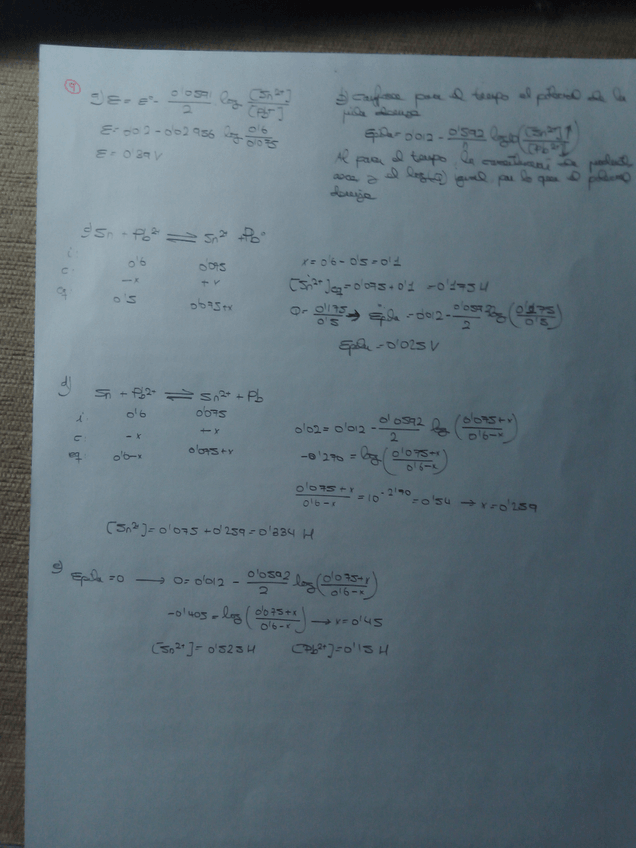 9
a) E = E° - 0'0591/2 log [Sn²⁺]/[Pb²⁺]
E = 0'012 - 0'02956 log 0'6/0'075
E = 0'39 V
b) conforme pasa el tiempo el potencial de la
pila
Epila = 0'012 - 0'592/ log ([Sn²⁺]↑/[Pb²⁺]↓)
Al pasar el tiempo la
y el log(Q) igual por lo que el potencial
c) Sn + Pb²⁺ ⇌ Sn²⁺ + Pb°
i: 0'6 0'075
c: -x +x
eq: 0'5 0'075+x
x = 0'6 - 0'5 = 0'1
[Sn²⁺]eq = 0'075 + 0'1 = 0'175 M
Q = 0'175/0'5 → Epila = 0'012 - 0'0592/2 log (0'175/0'5)
Epila = 0'025 V
d) Sn + Pb²⁺ ⇌ Sn²⁺ + Pb
i. 0'6 0'075
c. -x +x
eq 0'6-x 0'075+x
0'02 = 0'012 - 0'0592/2 log (0'075+x/0'6-x)
-0'270 = log (0'075+x/0'6-x)
0'075+x/0'6-x = 10^-2'70 = 0'54 → x = 0'259
[Sn²⁺] = 0'075 + 0'259 = 0'334 M
e) Epila = 0 → 0 = 0'012 - 0'0592/2 log (0'075+x/0'6-x)
-0'405 = log (0'075+x/0'6-x) → x = 0'45
[Sn²⁺] = 0'525 M [Pb²⁺] = 0'15 M